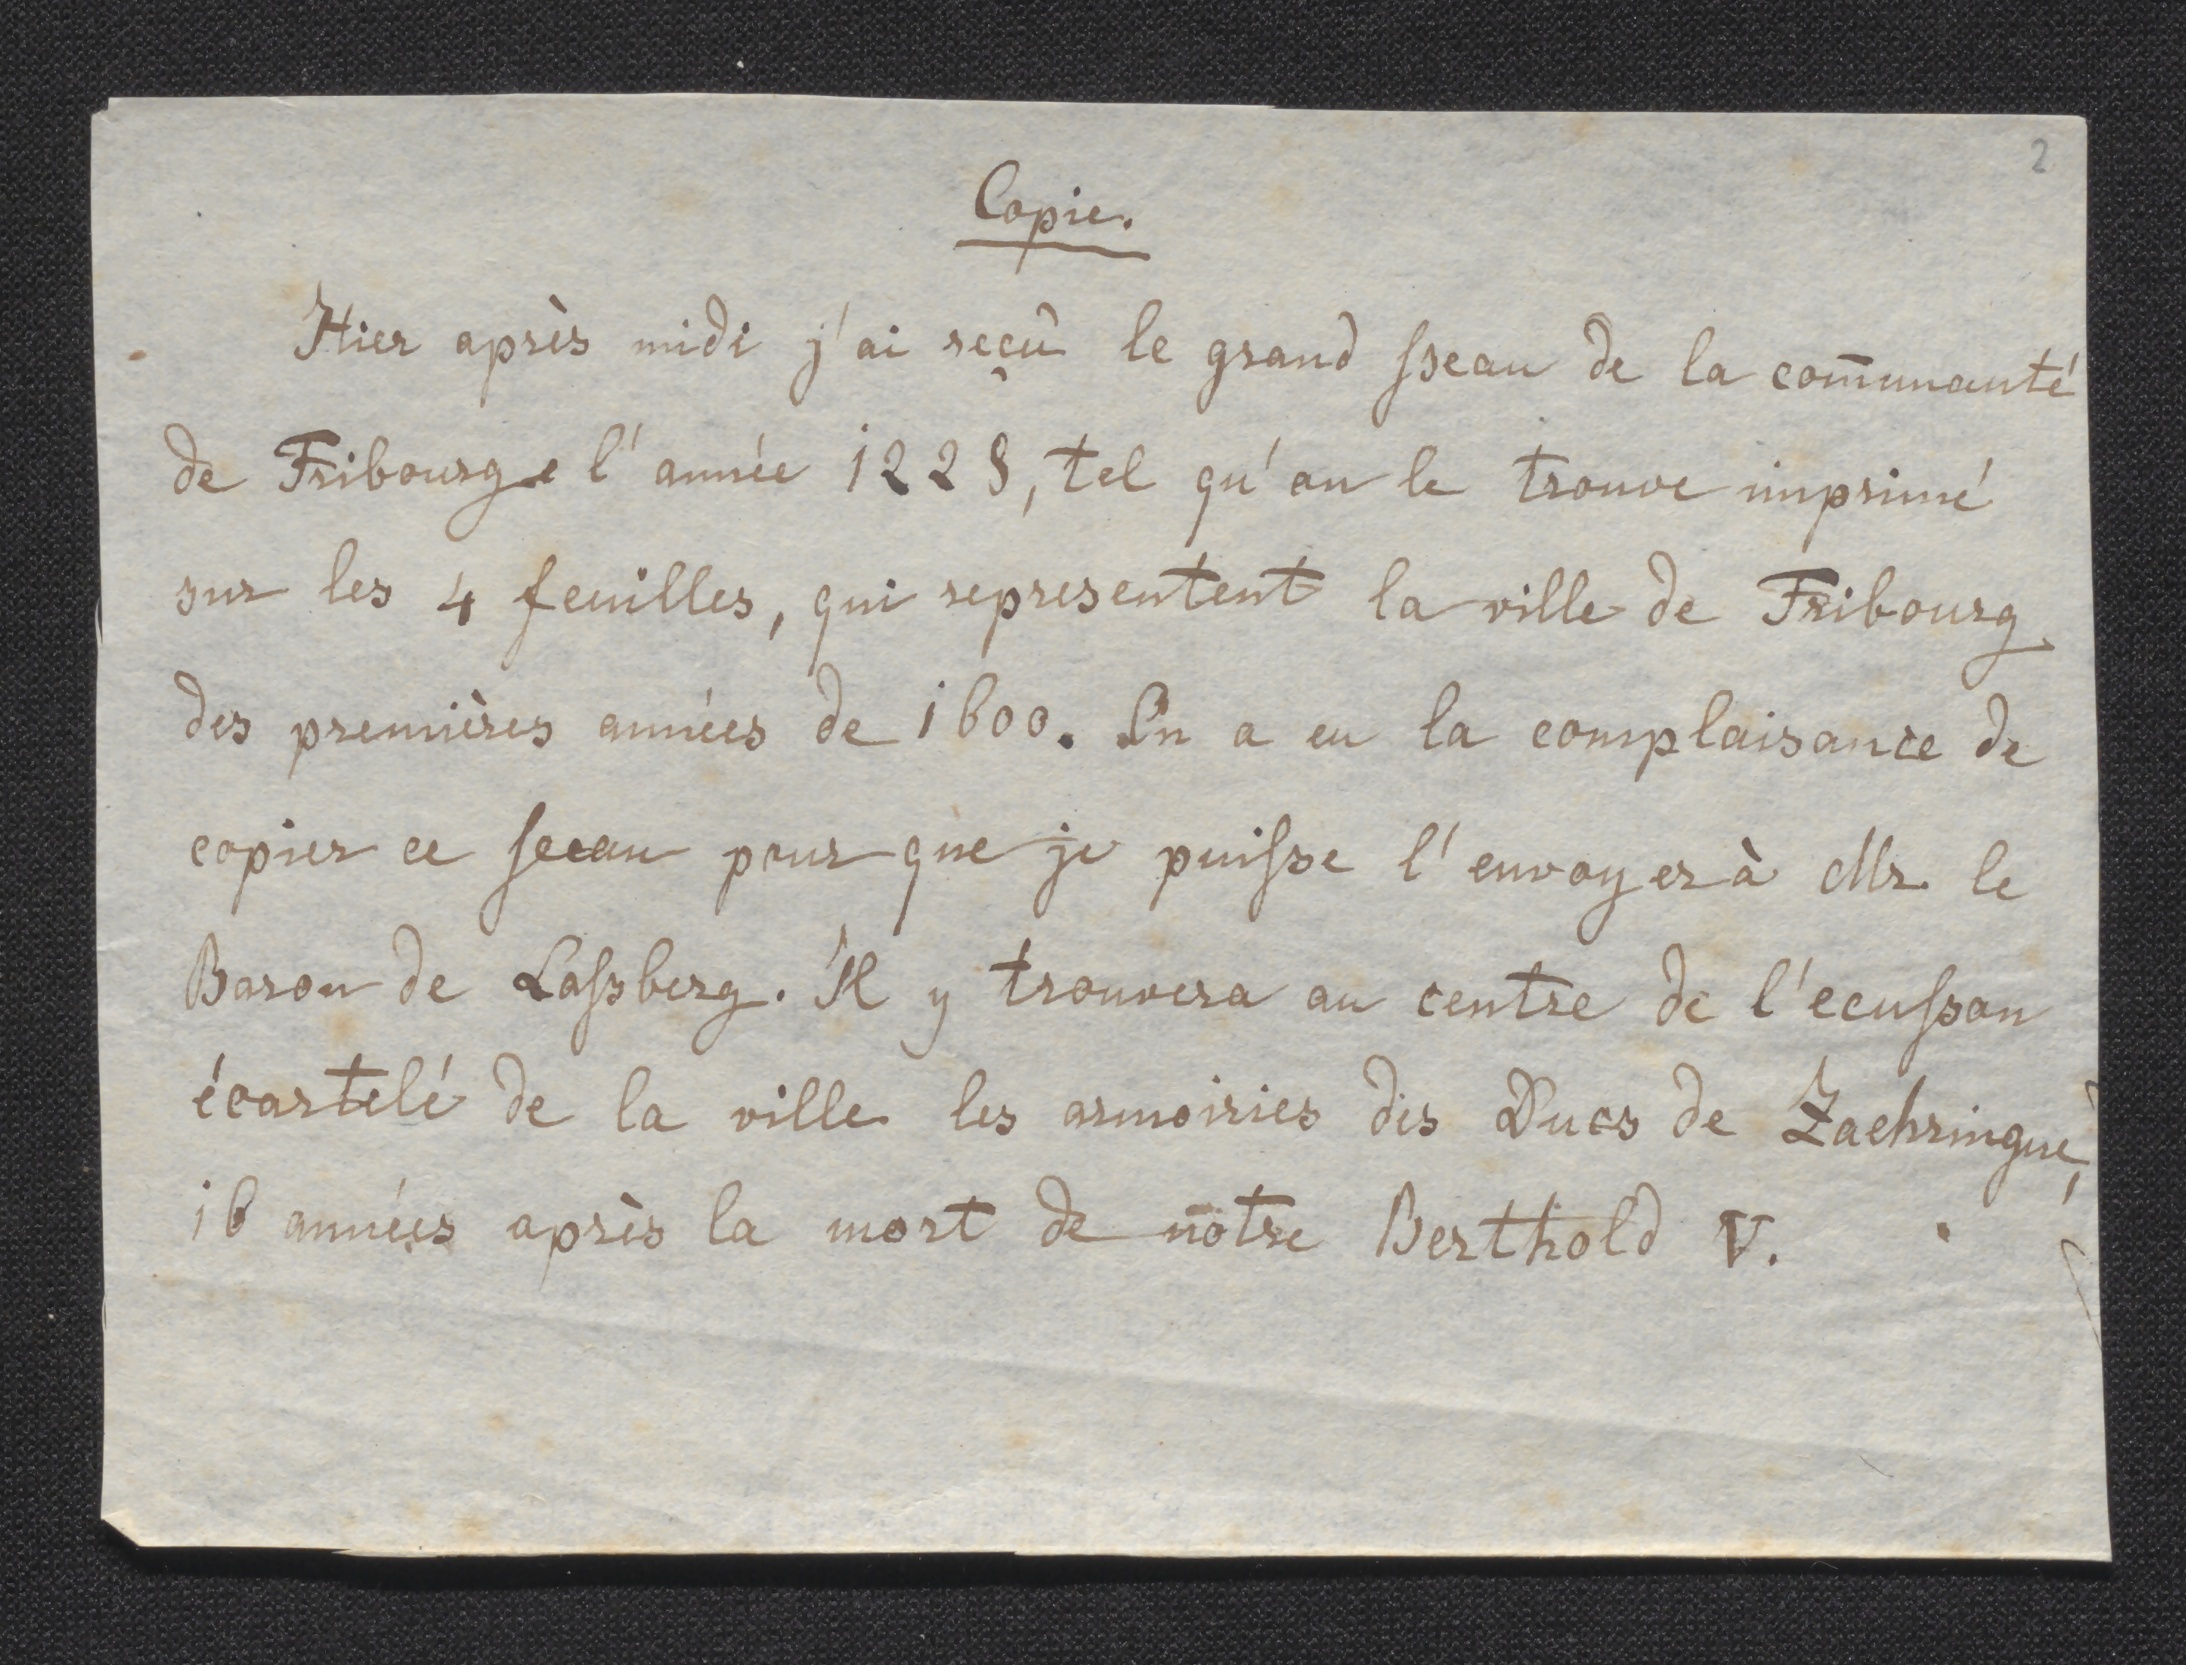 2
Copie.
Hier après midi j'ai reçû le grand sseau de la com̄unauté
de Fribourg l'année 1228, tel qu'on le trouve imprimé
sur les 4 feuilles, qui representent la ville de Fribourg
des premières années de 1600. On a eu la complaisance de
copier ce sceau pour que je puisse l'envoyer à Mr. le
Baron de Lassberg. Il y trouvera au centre de l'ecusson
écartelé de la ville les armoiries des Ducs de Zaehringue,
16 années après la mort de nôtre Berthold V.